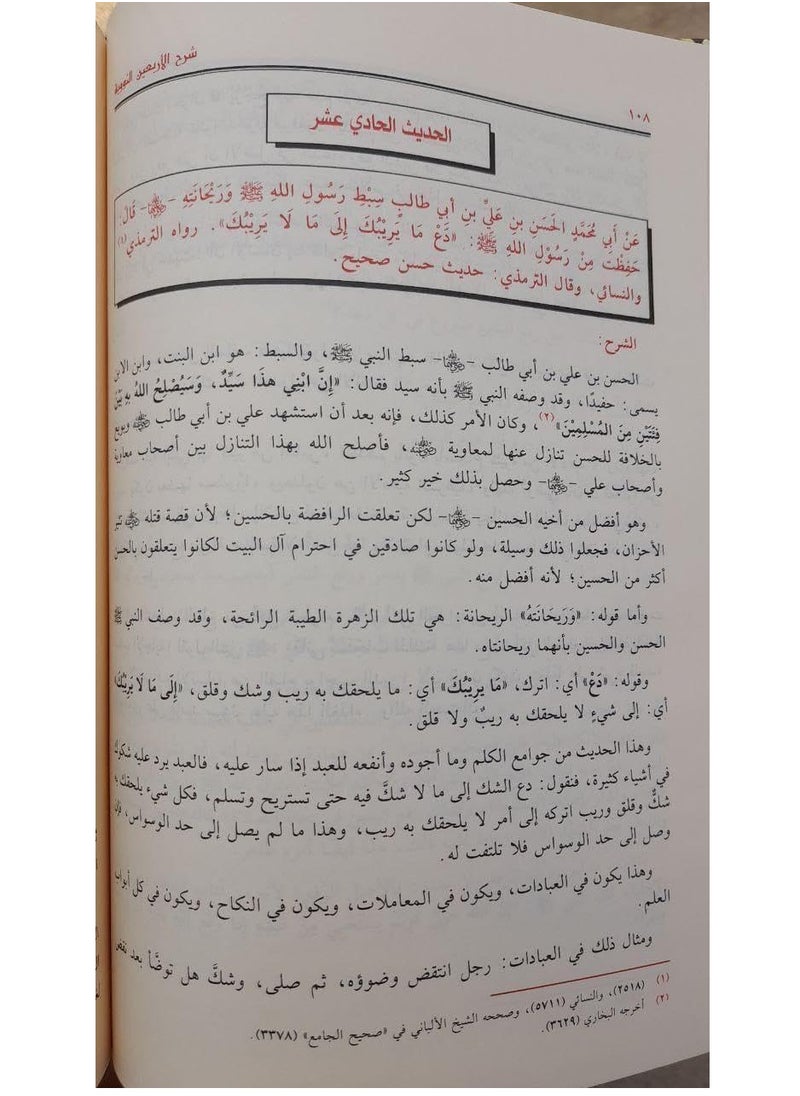 شرح الأربعين النووية
١٠٨
الحديث الحادي عشر
عَنْ أَبي مُحَمَّدٍ الحَسَنِ بنِ عَليِّ بنِ أبي طالبٍ سِبْطِ رَسُولِ اللهِ ﷺ وَرَيْحَانَتِهِ -رضي الله عنهما- قَالَ:
حَفِظْتُ مِنْ رَسُوْلِ اللهِ ﷺ: «دَعْ مَا يَرِيْبُكَ إِلَى مَا لَا يَرِيْبُكَ». رواه الترمذي(١)
والنسائي، وقال الترمذي: حديث حسن صحيح.
الشرح:
الحسن بن علي بن أبي طالب -رضي الله عنهما- سبط النبي ﷺ، والسبط: هو ابن البنت، وابن الابن
يسمى: حفيدًا، وقد وصفه النبي ﷺ بأنه سيد فقال: «إِنَّ ابْنِي هذَا سَيِّدٌ، وَسَيُصْلِحُ اللهُ بِهِ بَيْنَ
فِئَتَيْنِ مِنَ المُسْلِمِيْنَ»(٢)، وكان الأمر كذلك، فإنه بعد أن استشهد علي بن أبي طالب رضي الله عنه وبويع
بالخلافة للحسن تنازل عنها لمعاوية رضي الله عنه، فأصلح الله بهذا التنازل بين أصحاب معاوية
وأصحاب علي -رضي الله عنهما- وحصل بذلك خير كثير.
وهو أفضل من أخيه الحسين -رضي الله عنهما- لكن تعلقت الرافضة بالحسين؛ لأن قصة قتله رضي الله عنه تثير
الأحزان، فجعلوا ذلك وسيلة، ولو كانوا صادقين في احترام آل البيت لكانوا يتعلقون بالحسن
أكثر من الحسين؛ لأنه أفضل منه.
وأما قوله: «وَرَيحَانَتهُ» الريحانة: هي تلك الزهرة الطيبة الرائحة، وقد وصف النبي ﷺ
الحسن والحسين بأنهما ريحانتاه.
وقوله: «دَعْ» أي: اترك، «مَا يَرِيْبُكَ» أي: ما يلحقك به ريب وشك وقلق، «إِلَى مَا لَا يَرِيْبُكَ»
أي: إلى شيءٍ لا يلحقك به ريبٌ ولا قلق.
وهذا الحديث من جوامع الكلم وما أجوده وأنفعه للعبد إذا سار عليه، فالعبد يرد عليه شكوك
في أشياء كثيرة، فنقول: دع الشك إلى ما لا شكَّ فيه حتى تستريح وتسلم، فكل شيء يلحقك به
شكٌّ وقلق وريب اتركه إلى أمر لا يلحقك به ريب، وهذا ما لم يصل إلى حد الوسواس، فإن
وصل إلى حد الوسواس فلا تلتفت له.
وهذا يكون في العبادات، ويكون في المعاملات، ويكون في النكاح، ويكون في كل أبواب
العلم.
ومثال ذلك في العبادات: رجل انتقض وضوؤه، ثم صلى، وشكَّ هل توضَّأ بعد نقض
(١) (٢٥١٨)، والنسائي (٥٧١١)، وصححه الشيخ الألباني في «صحيح الجامع» (٣٣٧٨).
(٢) أخرجه البخاري (٣٦٢٩).